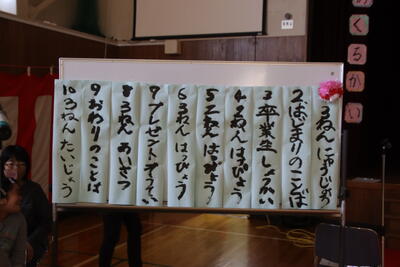 1 ろねんにゅうじょう
2 はじまりのことば
3 卒業生しょうかい
4 ねんはっぴょう
5 ねんはっぴょう
6 ろねんはっぴょう
7 プレゼント
8 ろねんあいさつ
9 おわりのことば
10 ろねんたいじょう
くるかい